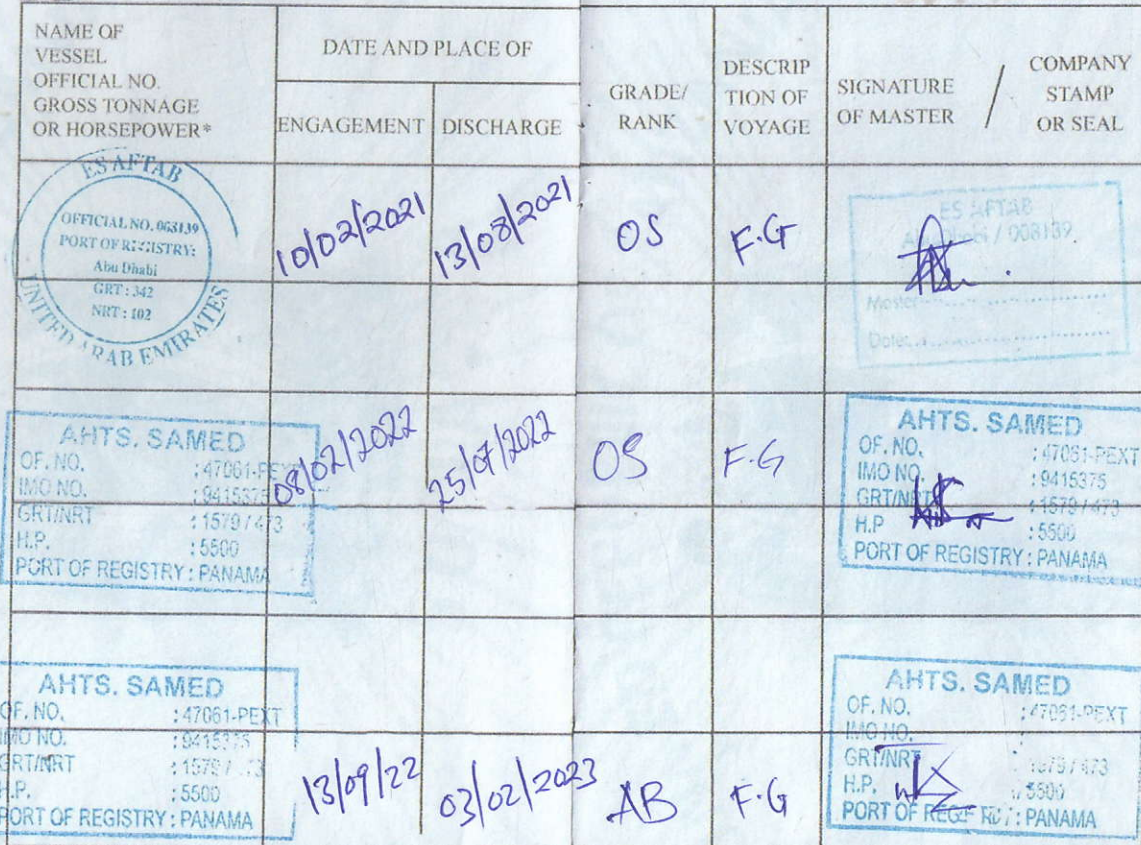 NAME OF
VESSEL
OFFICIAL NO.
GROSS TONNAGE
OR HORSEPOWER*
DATE AND PLACE OF
ENGAGEMENT
DISCHARGE
GRADE/
RANK
DESCRIP
TION OF
VOYAGE
SIGNATURE
OF MASTER
/
COMPANY
STAMP
OR SEAL
ES AFTAB
OFFICIAL NO. 003139
PORT OF REGISTRY:
Abu Dhabi
GRT : 342
NRT : 102
UNITED ARAB EMIRATES
10/02/2021
13/08/2021
OS
F.G
ES AFTAB
Abu Dhabi / 003139
Master
Date
AHTS. SAMED
OF. NO. : 47061-PEXT
IMO NO. : 9415375
GRT/NRT : 1579 / 473
H.P. : 5500
PORT OF REGISTRY : PANAMA
08/02/2022
25/07/2022
OS
F.G
AHTS. SAMED
OF. NO. : 47061-PEXT
IMO NO. : 9415375
GRT/NRT : 1579 / 473
H.P : 5500
PORT OF REGISTRY : PANAMA
AHTS. SAMED
OF. NO. : 47061-PEXT
IMO NO. : 9415375
GRT/NRT : 1579 /
H.P. : 5500
PORT OF REGISTRY : PANAMA
13/09/22
03/02/2023
AB
F.G
AHTS. SAMED
OF. NO. : 47061-PEXT
IMO NO. :
GRT/NRT : 1579 / 473
H.P. : 5500
PORT OF : PANAMA